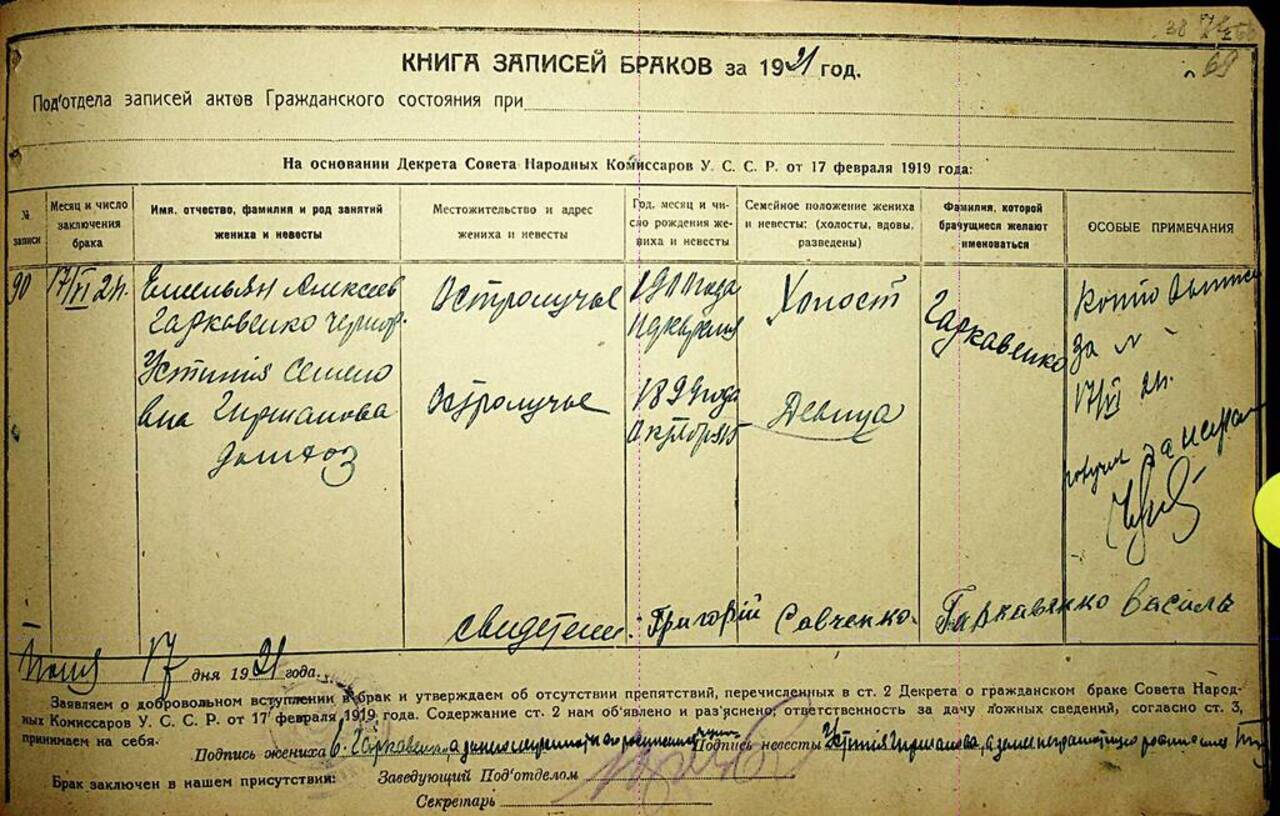 69
КНИГА ЗАПИСЕЙ БРАКОВ за 1921 год.
Под'отдела записей актов Гражданского состояния при
На основании Декрета Совета Народных Комиссаров У. С. С. Р. от 17 февраля 1919 года:
№ записи
Месяц и число заключения брака
Имя, отчество, фамилия и род занятий жениха и невесты
Местожительство и адрес жениха и невесты
Год, месяц и число рождения жениха и невесты
Семейное положение жениха и невесты: (холосты, вдовы, разведены)
Фамилия, которой брачущиеся желают именоваться
ОСОБЫЕ ПРИМЕЧАНИЯ
90
17/VI 21г.
Емельян Алексеев
Гаркавенко
Остролучье
Холост
Гаркавенко
Устиния Семено
вна Гиршанова
Остролучье
1899 года
Октября 15
Девица
за №
17/VI 21г.
свидетели: Григорій Савченко. Гаркавенко Василь
17 дня 1921 года.
Заявляем о добровольном вступлении в брак и утверждаем об отсутствии препятствий, перечисленных в ст. 2 Декрета о гражданском браке Совета Народ-
ных Комиссаров У. С. С. Р. от 17 февраля 1919 года. Содержание ст. 2 нам об'явлено и раз'яснено; ответственность за дачу ложных сведений, согласно ст. 3,
принимаем на себя.
Подпись жениха Е. Гаркавенко Подпись невесты Устиния Гиршанова
Брак заключен в нашем присутствии: Заведующий Под'отделом
Секретарь